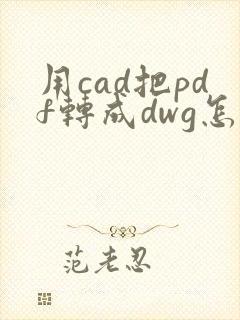 用cad把pd
f轉成dwg怎
范老忍